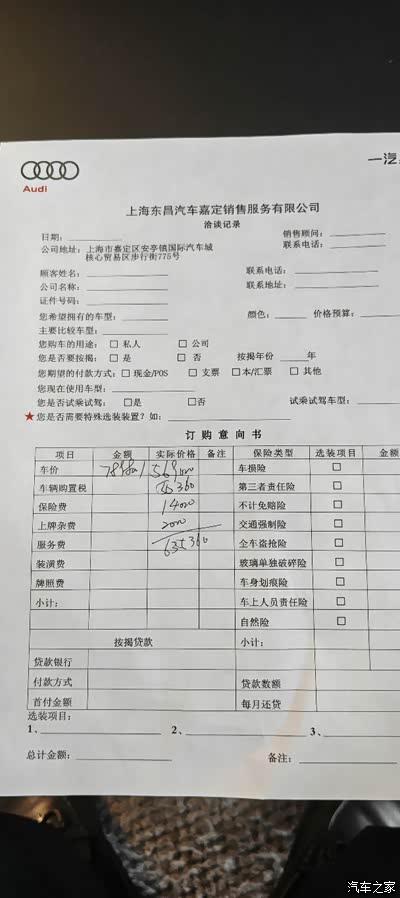 一汽
Audi
上海东昌汽车嘉定销售服务有限公司
洽谈记录
日期: 销售顾问:
公司地址: 上海市嘉定区安亭镇国际汽车城 联系电话:
核心贸易区步行街775号
顾客姓名: 联系电话:
公司名称: 联系地址:
证件号码:
您希望拥有的车型: 颜色: 价格预算:
主要比较车型:
您购车的用途: □ 私人 □ 公司
您是否要按揭: □ 是 □ 否 按揭年份 年
您期望的付款方式: □ 现金/POS □ 支票 □ 本/汇票 □ 其他
您现在使用车型:
您是否试乘试驾: □是 □否 试乘试驾车型:
★您是否需要特殊选装装置? 如:
订购意向书
项目 金额 实际价格 备注 保险类型 选装项目 金额
车价 569000 车损险 □
车辆购置税 50360 第三者责任险 □
保险费 14000 不计免赔险 □
上牌杂费 2000 交通强制险 □
服务费 635360 全车盗抢险 □
装潢费 玻璃单独破碎险 □
牌照费 车身划痕险 □
小计: 车上人员责任险 □
自然险 □
按揭贷款 小计:
贷款银行
付款方式 贷款数额
首付金额 每月还贷
选装项目:
1、 2、 3、
总计金额: 备注:
汽车之家